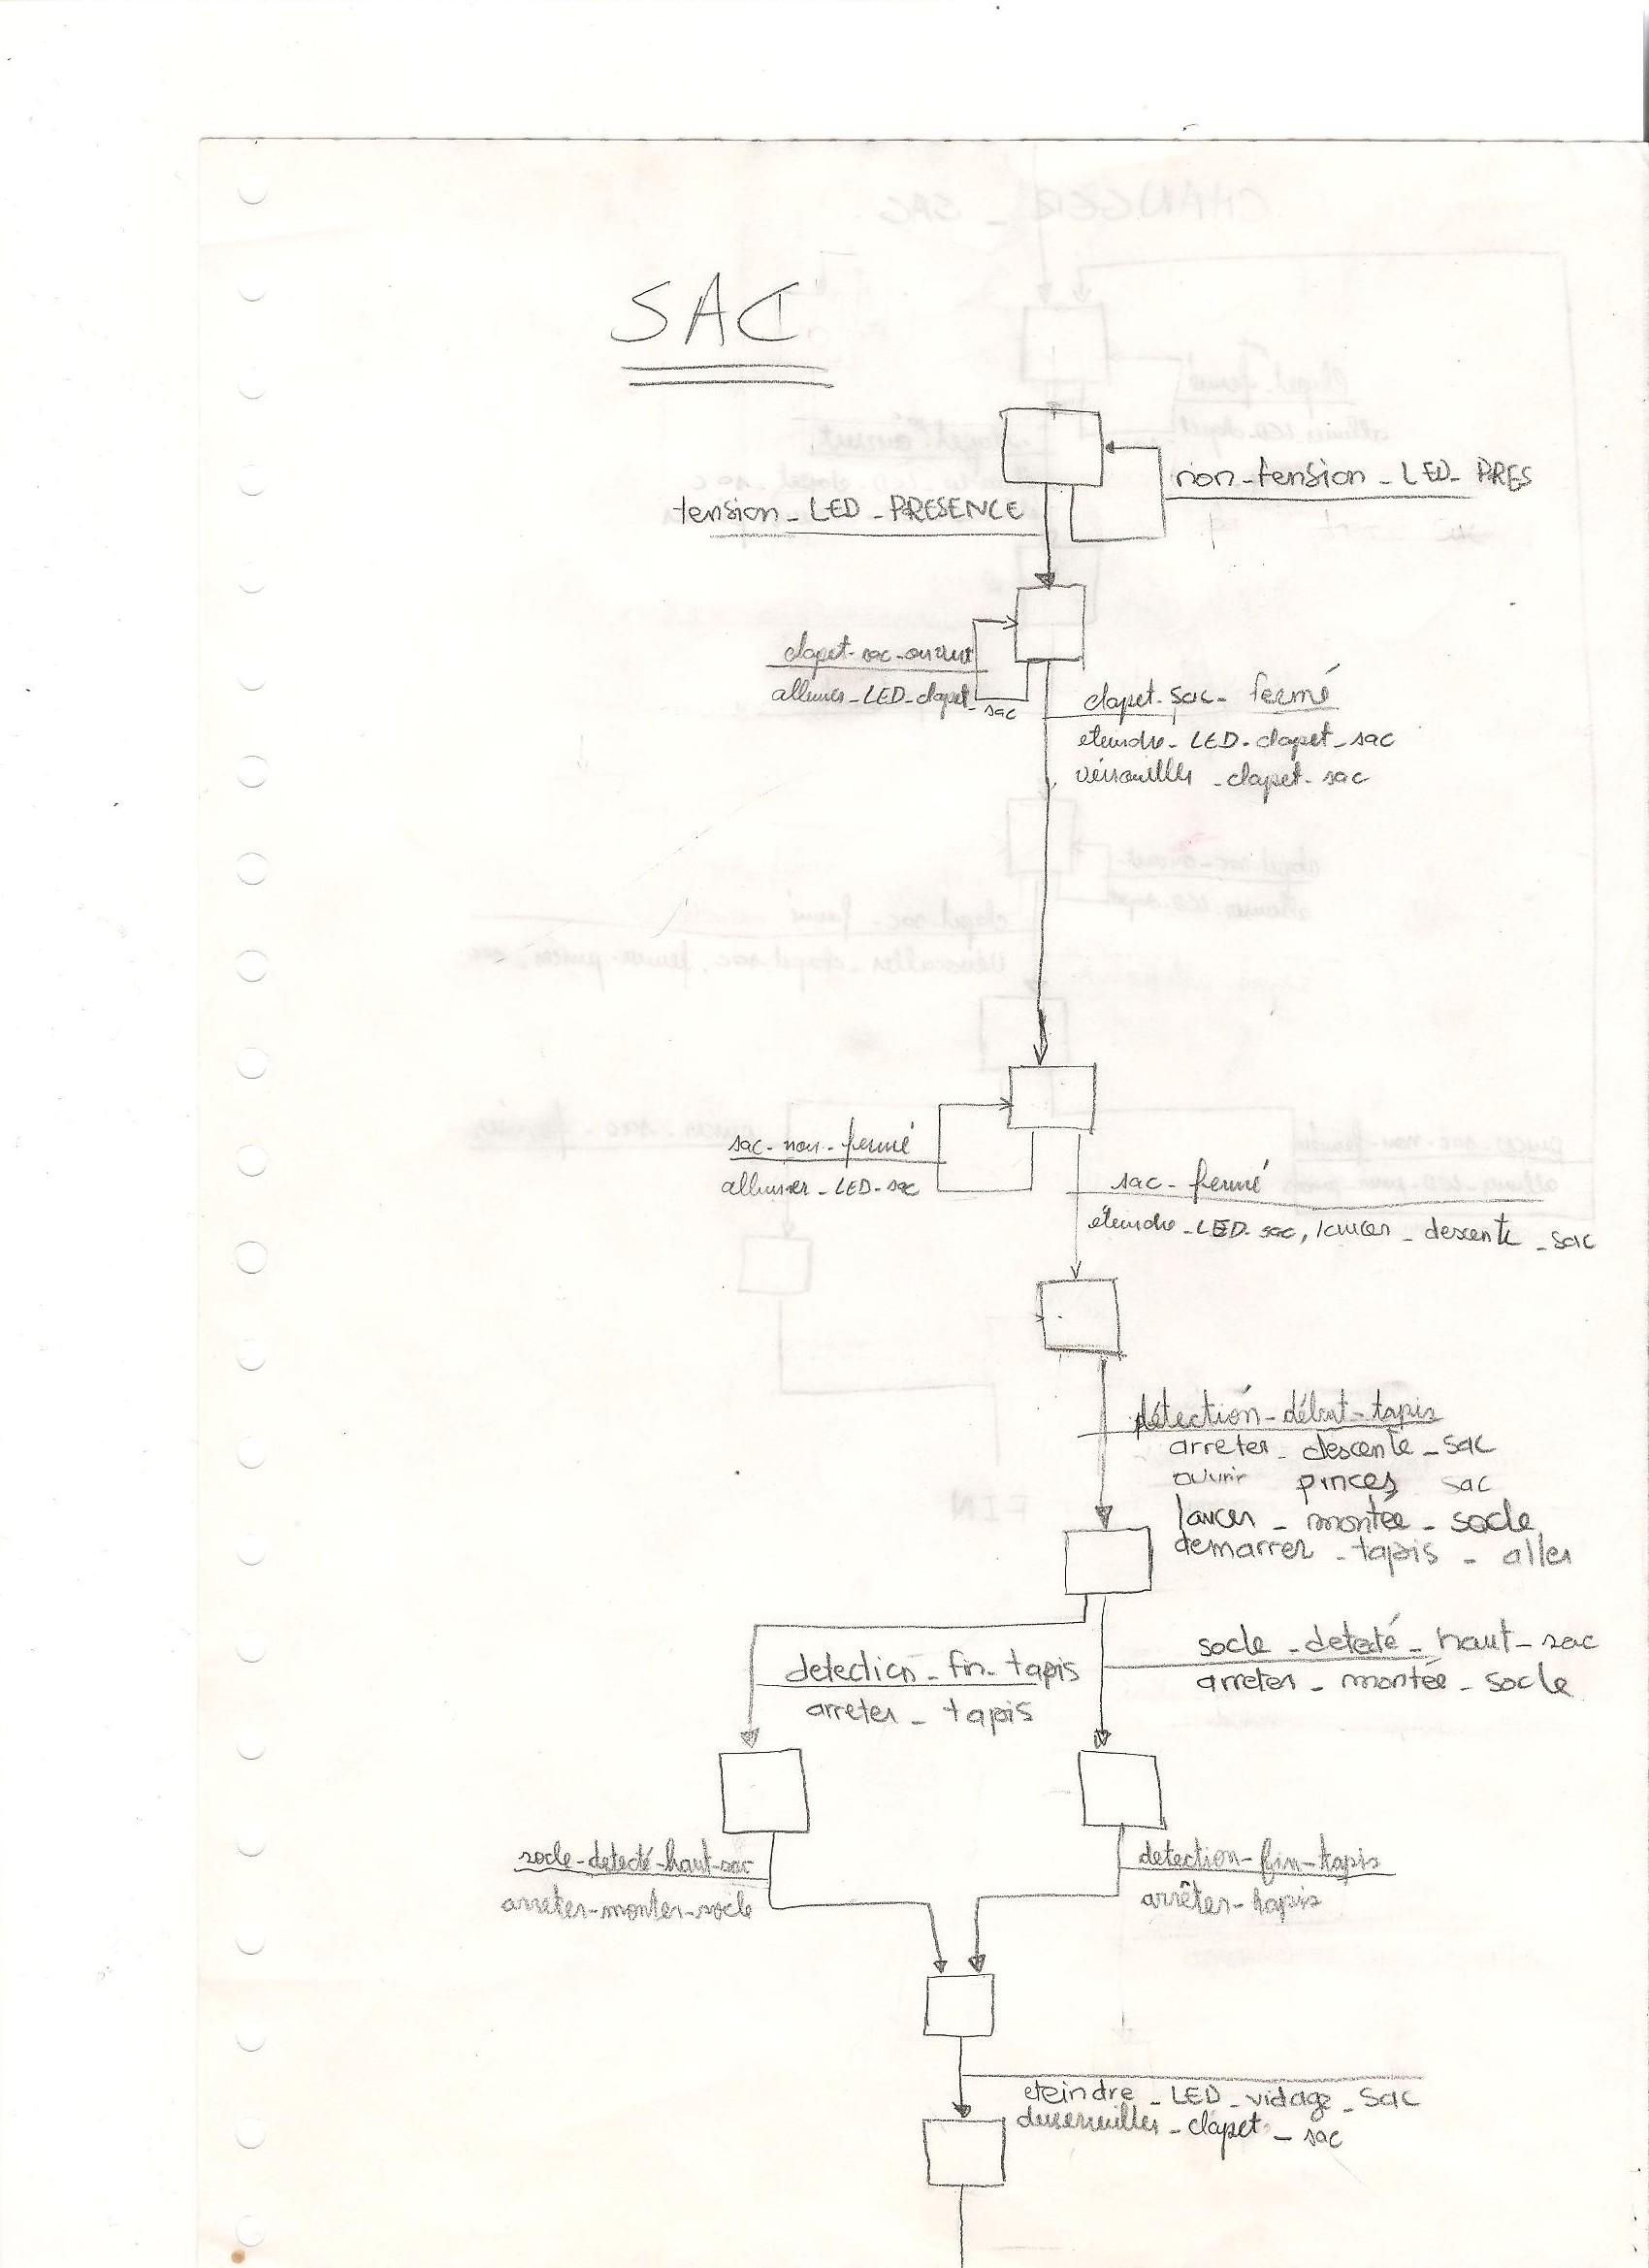 SAC
non-tension_LED_PRES
tension_LED_PRESENCE
clapet-sac-ouvert
allumer_LED_clapet_sac
clapet_sac_fermé
eteindre_LED_clapet_sac
verrouiller_clapet_sac
sac-non-fermé
allumer_LED_sac
sac_fermé
éteindre_LED_sac, lancer_descente_sac
détection_début_tapis
arreter_descente_sac
ouvrir pinces sac
lancer_montée_socle
demarrer_tapis_aller
socle_detecté_haut_sac
arreter_montée_socle
detection_fin_tapis
arreter_tapis
socle-detecté-haut-sac
arreter-monter-socle
detection-fin-tapis
arrêter-tapis
eteindre_LED_vidage_sac
clapet_sac